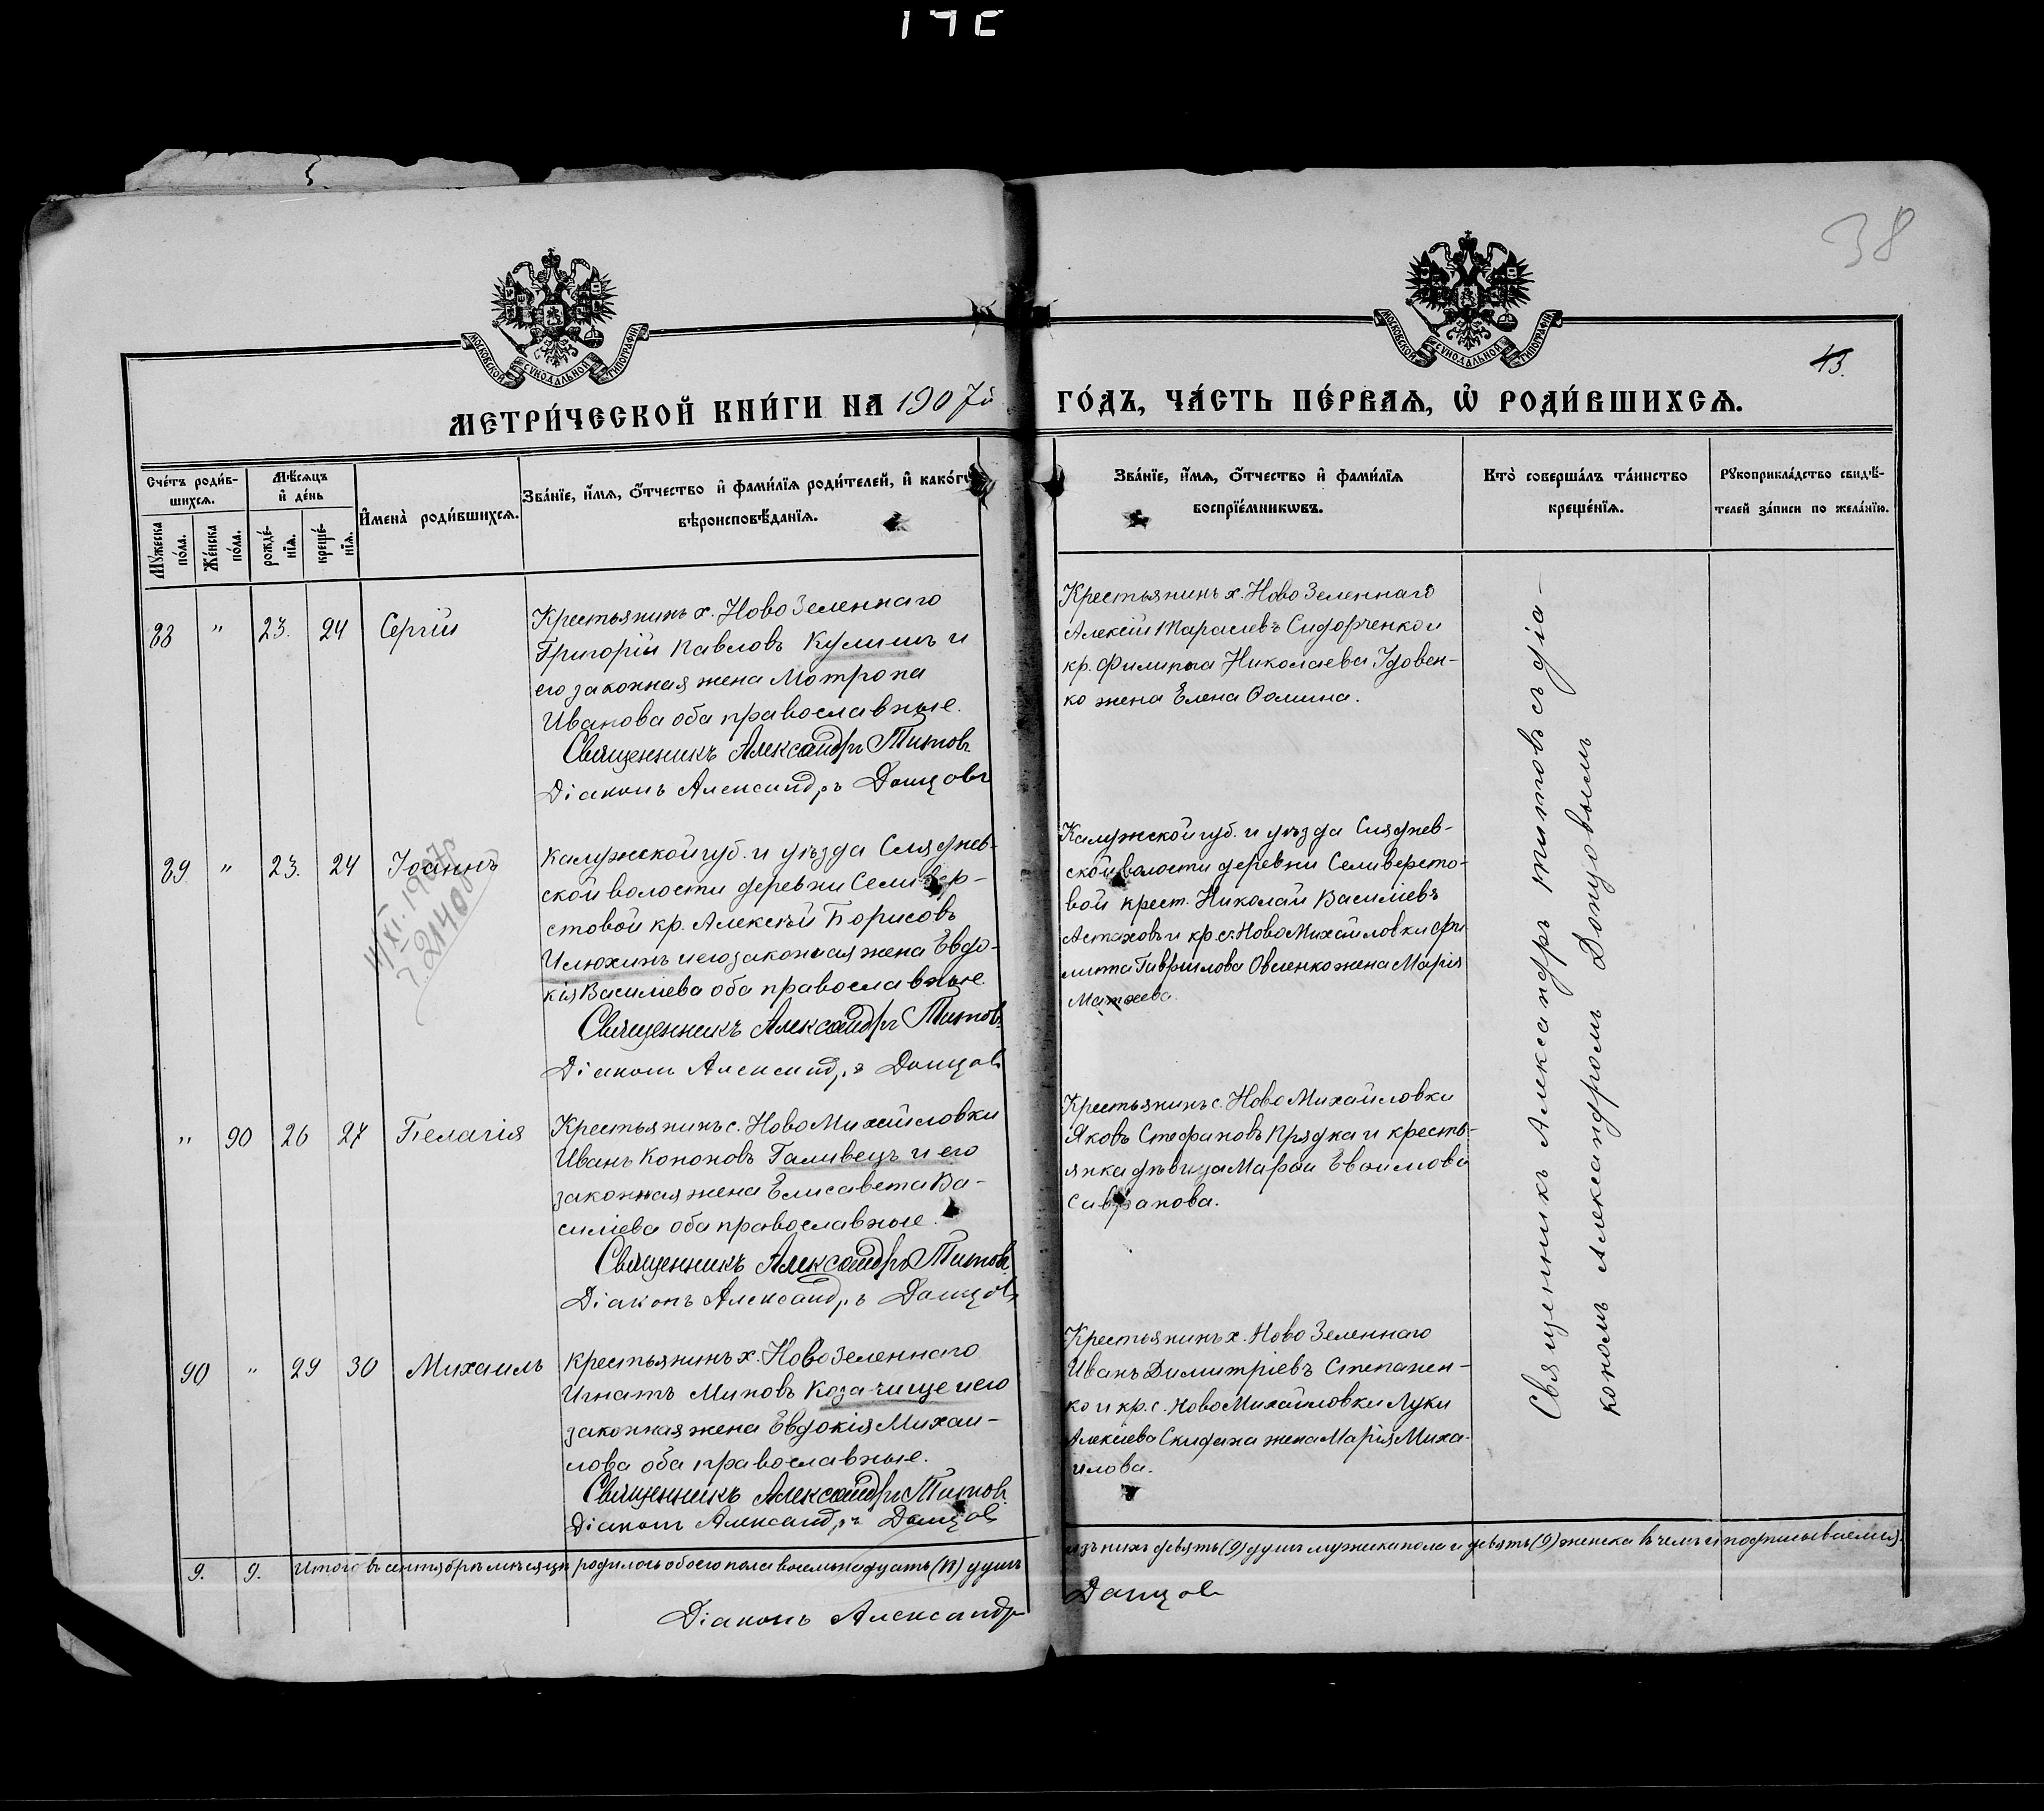 38
МОСКОВСКОЙ СѴНОДАЛЬНОЙ ТИПОГРАФІИ
МОСКОВСКОЙ СѴНОДАЛЬНОЙ ТИПОГРАФІИ
43.
МЕТРИ́ЧЕСКОЙ КНИ́ГИ НА 1907й ГО́ДЪ, ЧА́СТЬ ПЕ́РВАѦ, Ѡ҆ РОДИ́ВШИХСѦ.
Сче́тъ роди́в-
шихсѧ.
Мѣ́сѧцъ
и҆ де́нь
Мꙋ́жеска
по́ла.
Же́нска
по́ла.
рожде́-
нїѧ.
креще́-
нїѧ.
И҆мена̀ роди́вшихсѧ.
Зва́нїе, и҆́мѧ, ѻ҆́тчество и҆ фами́лїѧ роди́телей, и҆ како́гѡ
вѣроисповѣ́данїѧ.
Зва́нїе, и҆́мѧ, ѻ҆́тчество и҆ фами́лїѧ
воспрїе́мникѡвъ.
Кто̀ соверша́лъ та́инство
креще́нїѧ.
Рꙋкоприкла́дство свидѣ́-
телей за́писи по жела́нїю.
88 " 23. 24 Сергій
Крестьянинъ х. Ново Зеленнаго
Григорій Павловъ Кулишъ и
его законная жена Мотрона
Иванова оба православные.
Священникъ Александръ Титовъ
Діаконъ Александръ Донцовъ
Крестьянинъ х. Ново Зеленнаго
Алексій Тарасіевъ Сидорченко и
кр. Филиппа Николаева Удовен-
ко жена Елена Фомина.
89 " 23. 24 Іоаннъ
Калужской губ. и уѣзда Сляднев-
ской волости деревни Селивер-
стовой кр. Алексѣй Борисовъ
Илюхинъ и его законная жена Евдо-
кія Василіева оба православные.
Священникъ Александръ Титовъ
Діаконъ Александръ Донцовъ
Калужской губ. и уѣзда Сляднев-
ской волости деревни Селиверсто-
вой крест. Николай Василіевъ
Астаховъ и кр. с. Ново Михайловки Фи-
липа Гаврилова Овсіенко жена Марія
Матѳеева.
" 90 26 27 Пелагія
Крестьянинъ с. Ново Михайловки
Иванъ Кононовъ Галивецъ и его
законная жена Елисавета Ва-
силіева оба православные.
Священникъ Александръ Титовъ
Діаконъ Александръ Донцовъ
Крестьянинъ с. Ново Михайловки
Яковъ Стефановъ Прядка и кресть-
янка дѣвица Марѳа
Савранова.
90 " 29 30 Михаилъ
Крестьянинъ х. Ново Зеленнаго
Игнатъ Миновъ Козачище и его
законная жена Евдокія Михаи-
лова оба православные.
Священникъ Александръ Титовъ
Діаконъ Александръ Донцовъ
Крестьянинъ х. Ново Зеленнаго
Иванъ Димитріевъ Степанен-
ко и кр. с. Ново Михайловки Луки
Алексіева Скидана жена Марія Миха-
илова.
Священникъ Александръ Титовъ съ діа-
кономъ Александромъ Донцовымъ
9. 9. Итого въ сентябрѣ мѣсяцѣ родилось обоего пола восемьнадцать (18) душъ
изъ нихъ девять (9) душъ мужска пола и девять (9) женска въ чемъ и подписываемся:
Діаконъ Александръ Донцовъ